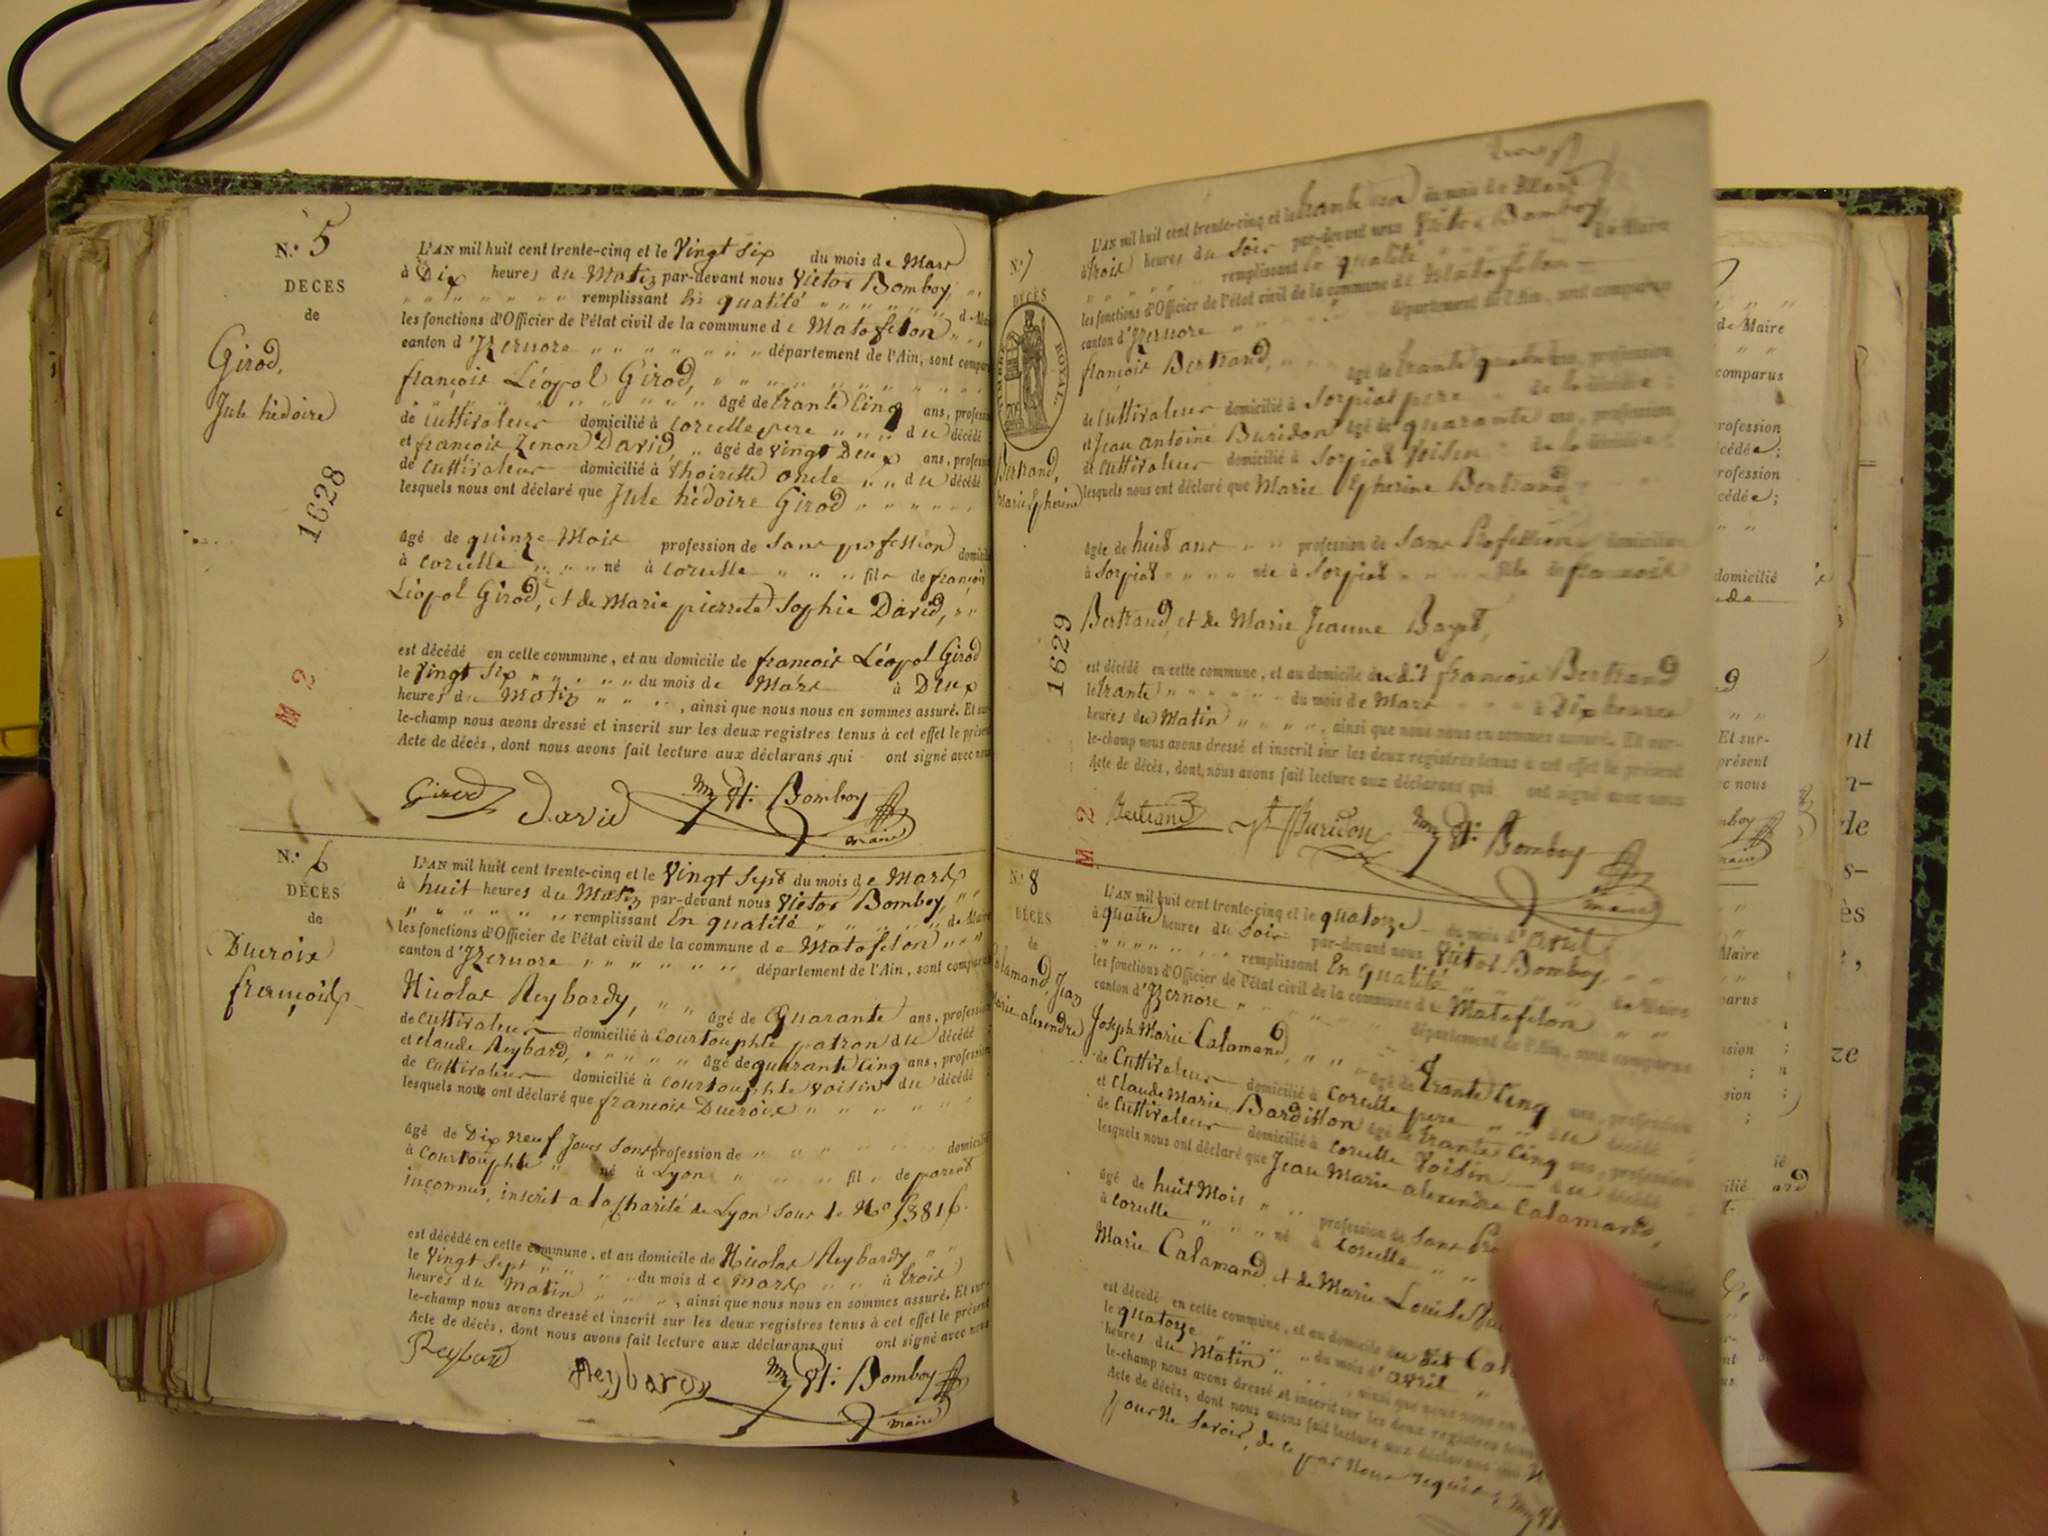 N.° 5
DÉCES
de
Girod,
Jule hédoire
1628
M 2
L'AN mil huit cent trente-cinq et le Vingt six du mois de Mars
à Dix heures du Matin par-devant nous Victor Bomboy,
remplissant En qualité de Maire
les fonctions d'Officier de l'état civil de la commune de Matafelon
canton d'Izernore département de l'Ain, sont compar
françois Léopol Girod,
âgé de trante Cinq ans, profess
de Cultivateur domicilié à Corcelle pere du décédé
et françois Zenon David, âgé de vingt Deux ans, profess
de Cultivateur domicilié à Thoirette oncle du décédé
lesquels nous ont déclaré que Jule hédoire Girod
âgé de quinze Mois profession de Sans profession domicil
à Corcelle né à Corcelle fils de françois
Léopol Girod, et de Marie pierrete Sophie David,
est décédé en cette commune, et au domicile de francois Léopol Girod
le Vingt Six du mois de Mars à Deux
heures du Matin, ainsi que nous nous en sommes assuré. Et sur
le-champ nous avons dressé et inscrit sur les deux registres tenus à cet effet le présent
Acte de décès, dont nous avons fait lecture aux déclarans qui ont signé avec nous
Girod David Bomboy
maire
N.° 6
DÉCES
de
Ducroix
françois
L'AN mil huit cent trente-cinq et le Vingt Sept du mois de Mars
à huit heures du Matin par-devant nous Victor Bomboy,
remplissant En qualité de Maire
les fonctions d'Officier de l'état civil de la commune de Matafelon
canton d'Izernore département de l'Ain, sont comparus
Nicolas Reybardy, âgé de Quarante ans, profession
de Cultivateur domicilié à Courtouphle patron du décédé
et Claude Reybard, âgé de quarante Cinq ans, profession
de Cultivateur domicilié à Courtouphle voisin du décédé
lesquels nous ont déclaré que francois Ducroix
âgé de Dix Neuf Jours Sans profession de domicilié
à Courtouphle né à Lyon fils de parent
inconnus, inscrit a la Charité de Lyon Sous le No
est décédé en cette commune, et au domicile de Nicolas Reybardy
le Vingt Sept du mois de Mars à trois
heures du Matin, ainsi que nous nous en sommes assuré. Et sur-
le-champ nous avons dressé et inscrit sur les deux registres tenus à cet effet le présent
Acte de décès, dont nous avons fait lecture aux déclarans qui ont signé avec nous
Reybard Reybardy Bomboy
maire
N.° 7
DÉCÈS
TIMBRE ROYAL
Bertrand,
1629
M 2
L'AN mil huit cent trente-cinq et le trante du mois de Mars
à trois heures du Soir par-devant nous Victor Bomboy
remplissant En qualité de Maire
les fonctions d'Officier de l'état civil de la commune de Matafelon
canton d'Izernore département de l'Ain, sont comparus
françois Bertrand, âgé de trante quatre ans, profession
de Cultivateur domicilié à Sorpiat pere de la décédée
et Jean antoine Buridon âgé de quarante ans, profession
de Cultivateur domicilié à Sorpiat Voisin de la décédée
lesquels nous ont déclaré que Marie Epherine Bertrand
âgée de huit ans profession de Sans Profession domiciliée
à Sorpiat née à Sorpiat fille de francois
Bertrand, et de Marie Jeanne
est décédée en cette commune, et au domicile du dit francois Bertrand
le trante du mois de Mars à Dix heures
heures du Matin, ainsi que nous nous en sommes assuré. Et sur-
le-champ nous avons dressé et inscrit sur les deux registres tenus à cet effet le présent
Acte de décès, dont nous avons fait lecture aux déclarans qui ont signé avec nous
Bertrand Buridon Bomboy
maire
N.° 8
DÉCÈS
de
Calamand, Jean
Marie alexendre
L'AN mil huit cent trente-cinq et le quatorze du mois d'avril
à quatre heures du Soir par-devant nous Victor Bomboy,
remplissant En qualité de Maire
les fonctions d'Officier de l'état civil de la commune de Matafelon
canton d'Izernore département de l'Ain, sont comparus
Joseph Marie Calamand, âgé de trante Cinq ans, profession
de Cultivateur domicilié à Corcelle pere du décédé
et Claude Marie Bardillon âgé de trante Cinq ans, profession
de Cultivateur domicilié à Corcelle Voisin du décédé
lesquels nous ont déclaré que Jean Marie alexendre Calamand,
âgé de huit Mois profession de Sans
à Corcelle né à Corcelle
Marie Calamand, et de Marie Louise
est décédé en cette commune, et au domicile du dit
le quatorze du mois d'avril
heures du Matin, ainsi que nous nous en
le-champ nous avons dressé et inscrit sur les deux registres tenus
Acte de décès, dont nous avons fait lecture aux déclarans qui
pour Ne Savoir, de ce par Nous requis
de Maire
comparus
profession
profession
domicilié
Et sur-
présent
nous
Maire